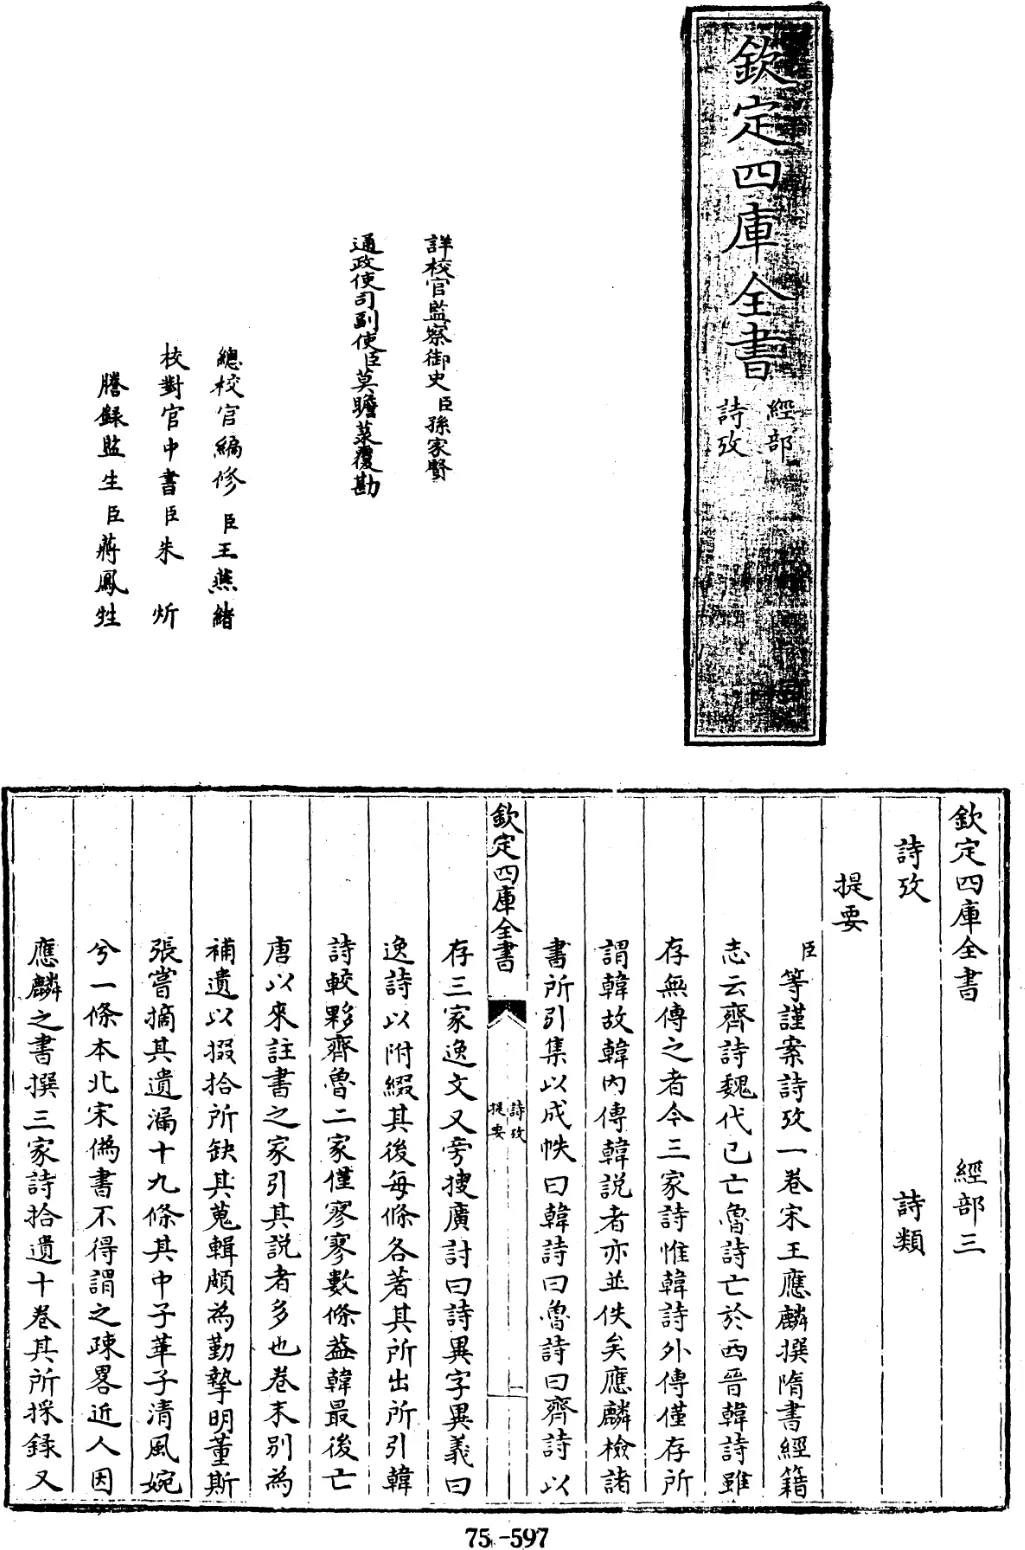 欽定四庫全書
經部
詩攷
詳校官監察御史臣孫家賢
通政使司副使臣莫瞻菉覆勘
總校官編修臣王燕緒
校對官中書臣朱炘
謄錄監生臣蔣鳳牲
欽定四庫全書 經部三
詩攷 詩類
提要
臣等謹案詩攷一卷宋王應麟撰隋書經籍
志云齊詩魏代已亡魯詩亡於西晉韓詩雖
存無傳之者今三家詩惟韓詩外傳僅存所
謂韓故韓内傳韓説者亦並佚矣應麟檢諸
書所引集以成帙曰韓詩曰魯詩曰齊詩以
欽定四庫全書
詩攷
提要
一
存三家逸文又旁搜廣討曰詩異字異義曰
逸詩以附綴其後每條各著其所出所引韓
詩較夥齊魯二家僅寥寥數條葢韓最後亡
唐以來註書之家引其説者多也卷末别為
補遺以掇拾所缺其蒐輯頗為勤摯明董斯
張嘗摘其遺漏十九條其中子華子清風婉
兮一條本北宋偽書不得謂之疎畧近人因
應麟之書撰三家詩拾遺十卷其所採錄又
75-597